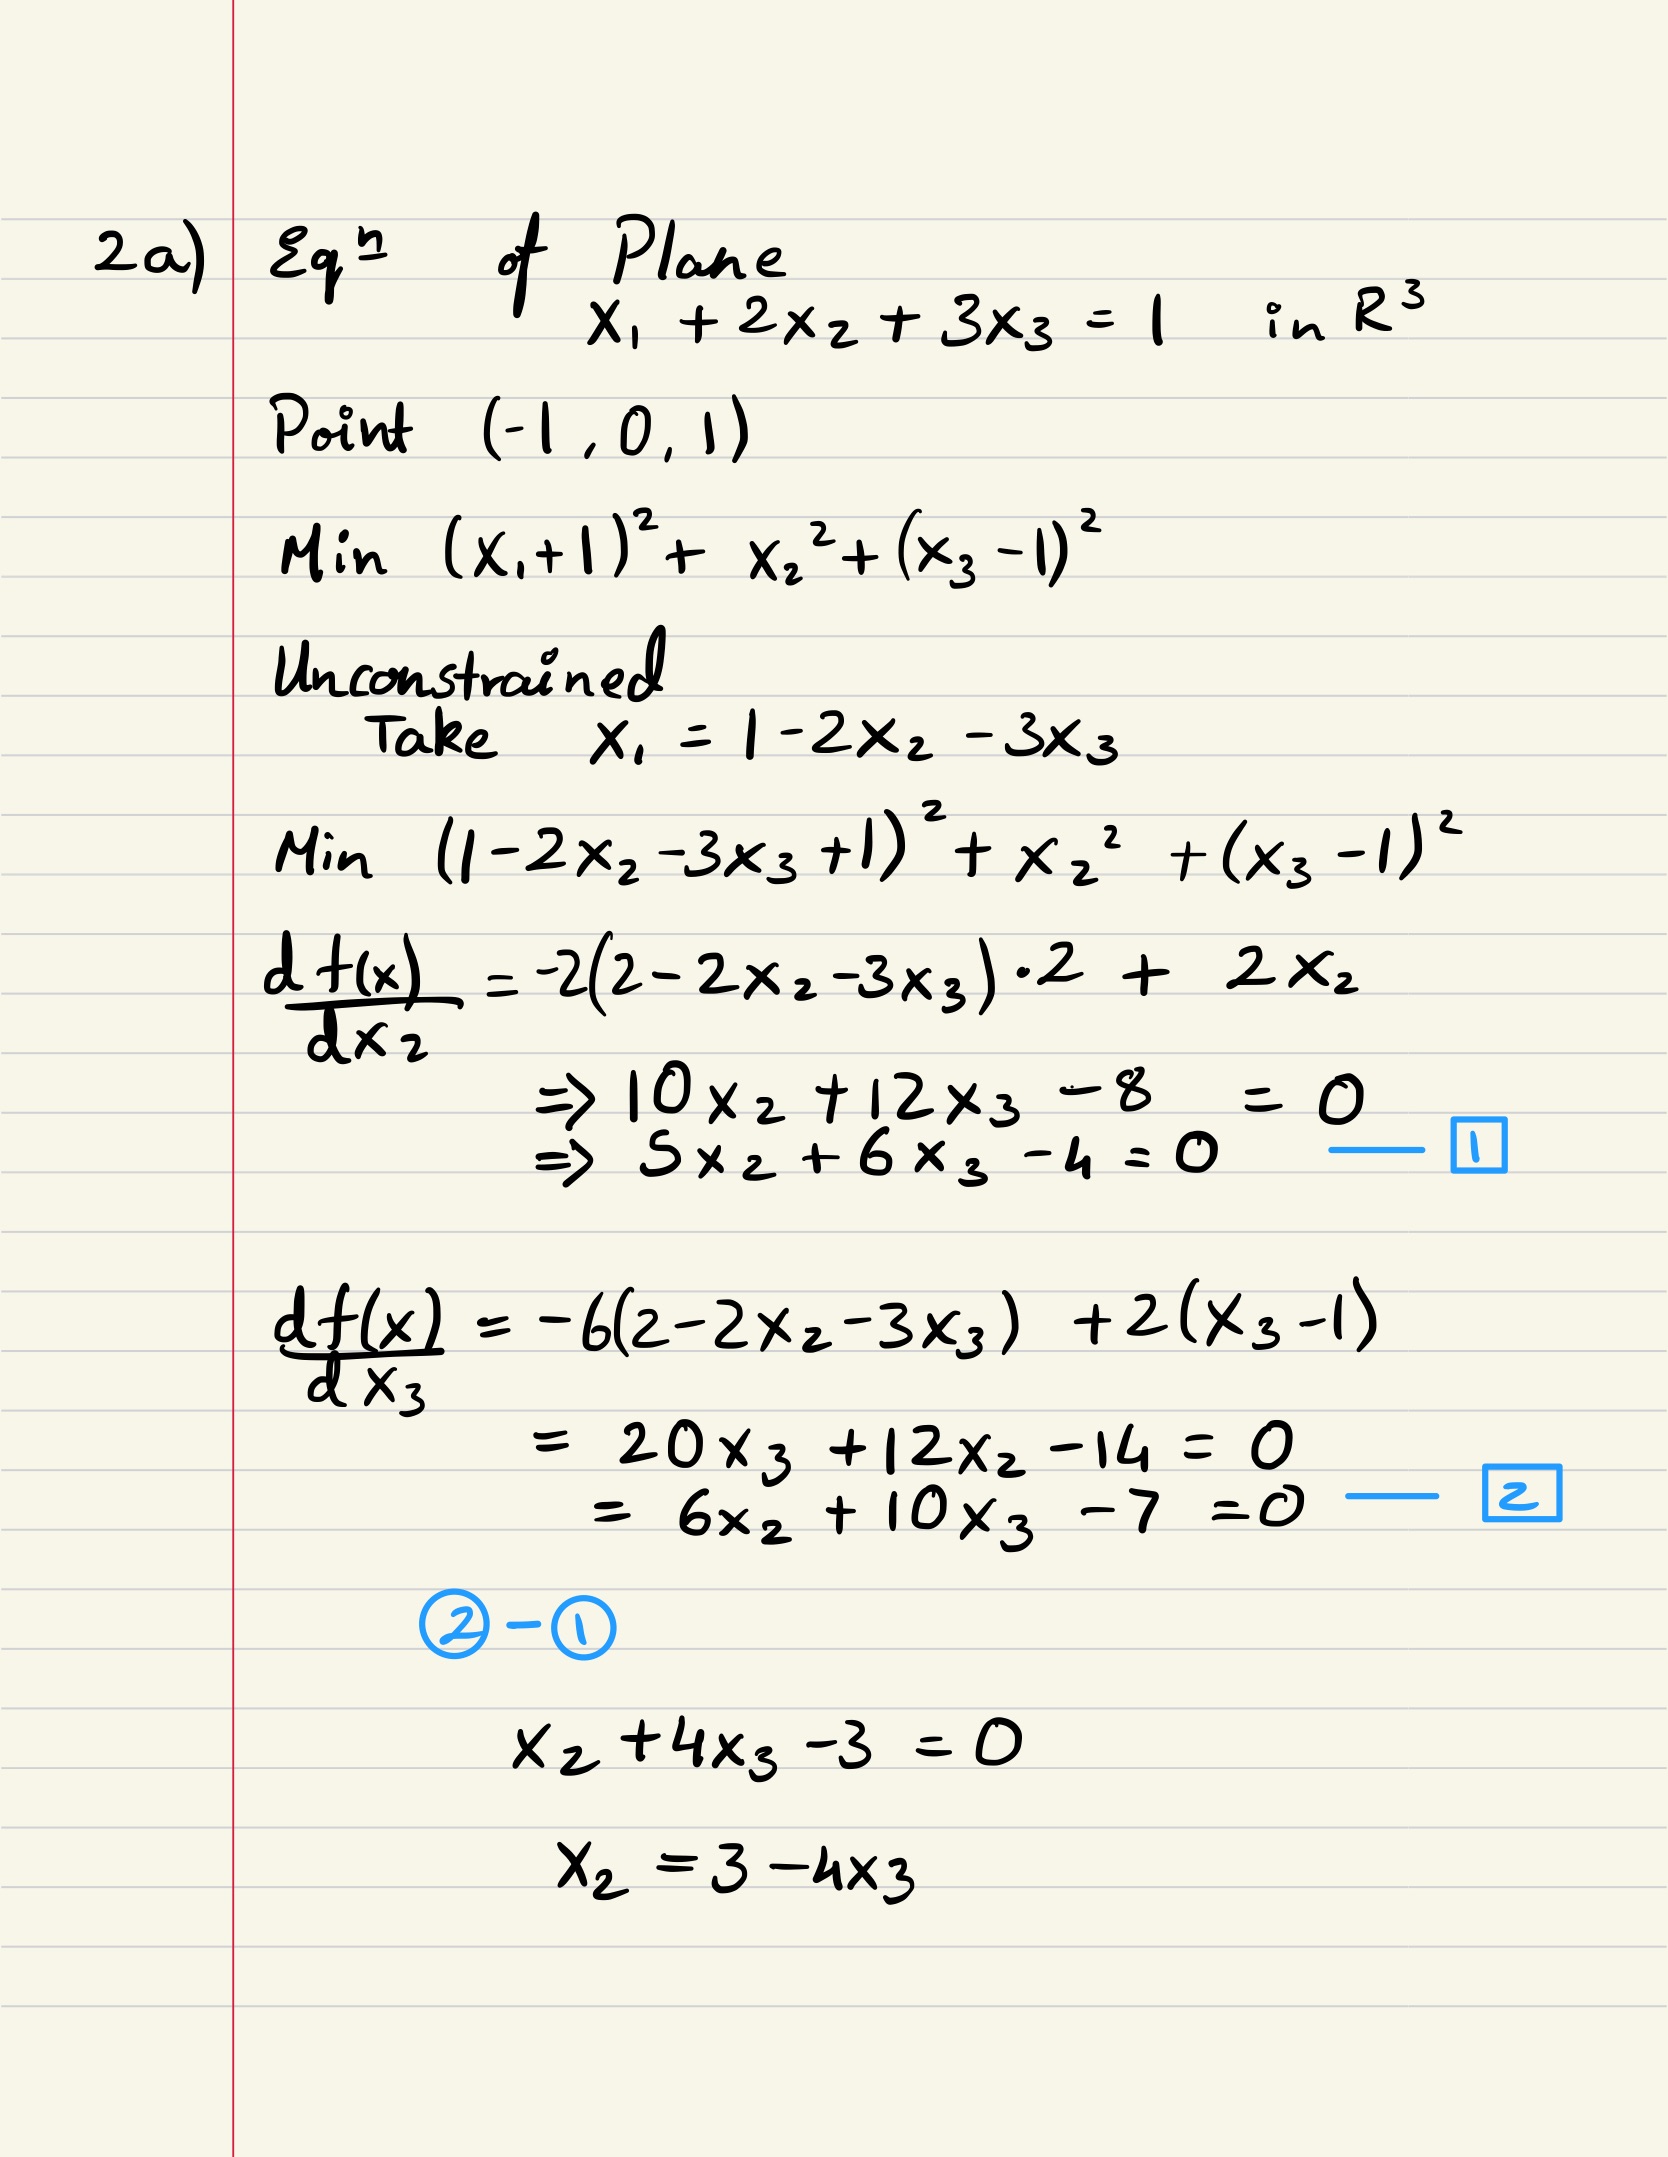 2a) Eqⁿ of Plane
x₁ + 2x₂ + 3x₃ = 1 in R³
Point (-1, 0, 1)
Min (x₁+1)² + x₂² + (x₃-1)²
Unconstrained
Take x₁ = 1-2x₂-3x₃
Min (1-2x₂-3x₃+1)² + x₂² + (x₃-1)²
df(x)/dx₂ = -2(2-2x₂-3x₃)·2 + 2x₂
⇒ 10x₂ + 12x₃ - 8 = 0
⇒ 5x₂ + 6x₃ - 4 = 0 — 1
df(x)/dx₃ = -6(2-2x₂-3x₃) + 2(x₃-1)
= 20x₃ + 12x₂ - 14 = 0
= 6x₂ + 10x₃ - 7 = 0 — 2
② - ①
x₂ + 4x₃ - 3 = 0
x₂ = 3 - 4x₃